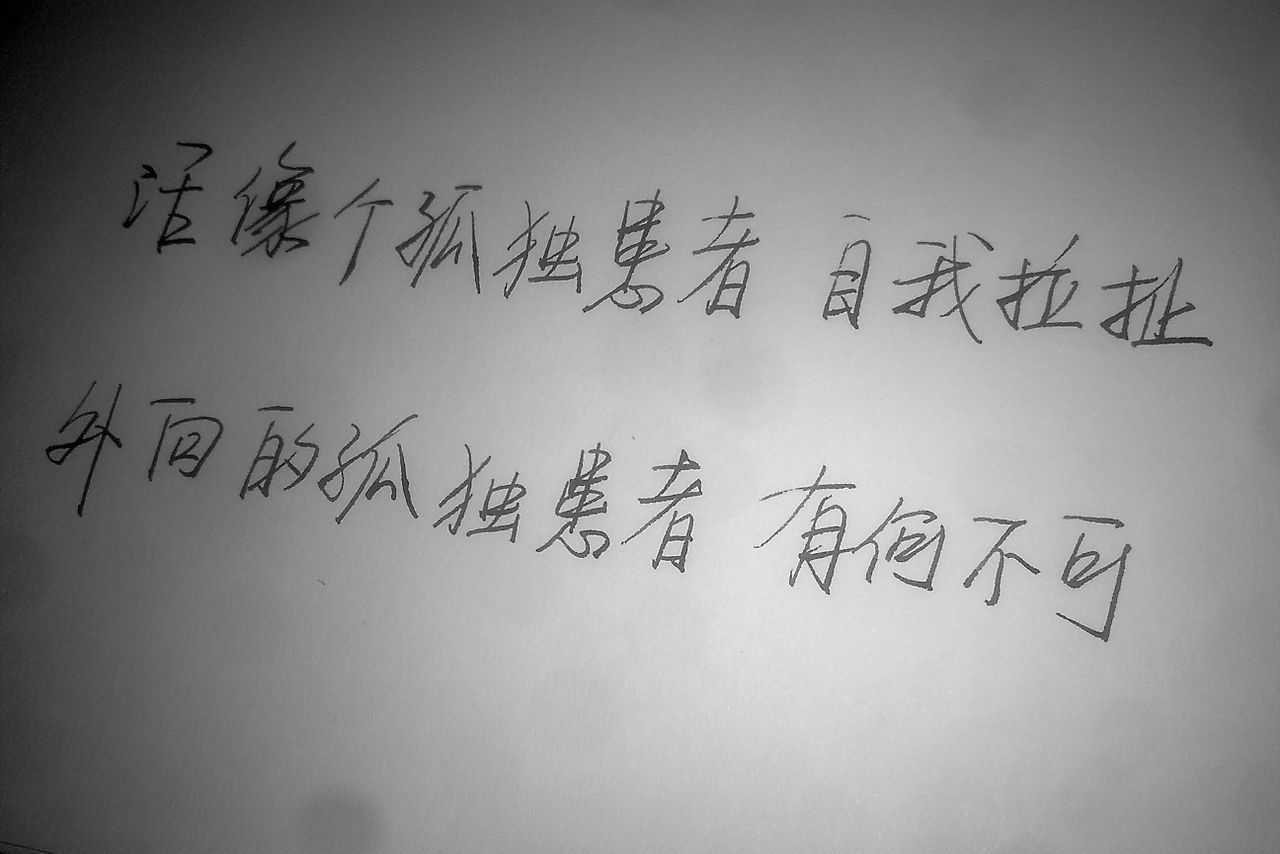 活像个孤独患者 自我拉扯
外向的孤独患者 有何不可